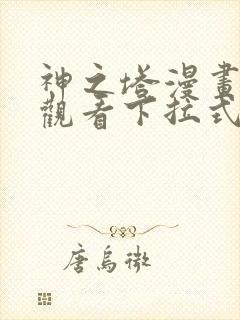 神之塔漫畫
觀看下拉式
唐烏微